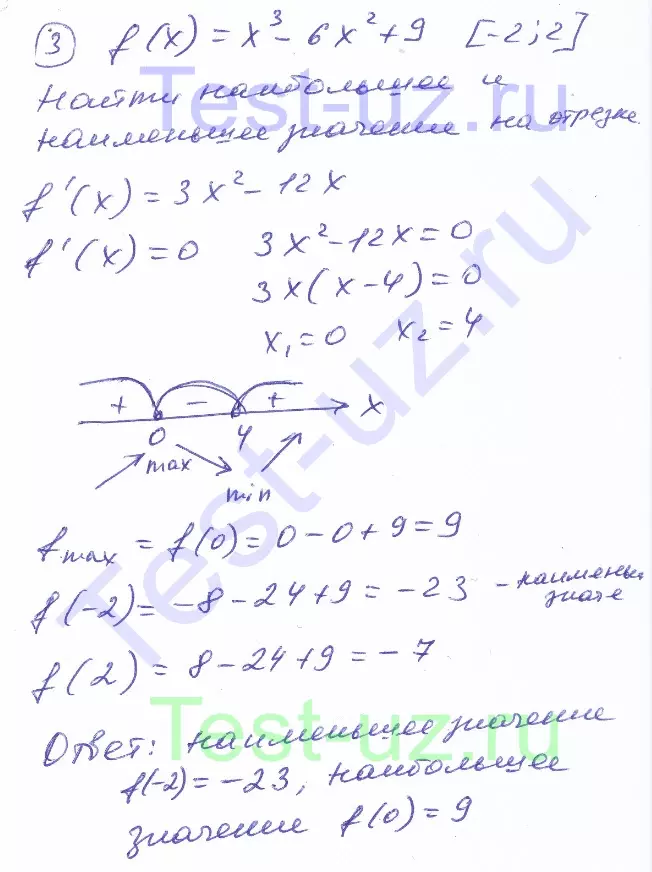 3 f(x) = x³ - 6x² + 9 [-2; 2]
Найти наибольшее и
наименьшее значение на отрезке.
f'(x) = 3x² - 12x
f'(x) = 0 3x² - 12x = 0
3x(x - 4) = 0
x₁ = 0 x₂ = 4
+ - + x
0 4
max
min
fmax = f(0) = 0 - 0 + 9 = 9
f(-2) = -8 - 24 + 9 = -23 -
f(2) = 8 - 24 + 9 = -7
Ответ: наименьшее значение
f(-2) = -23, наибольшее
значение f(0) = 9
Test-uz.ru
Test-uz.ru
Test-uz.ru